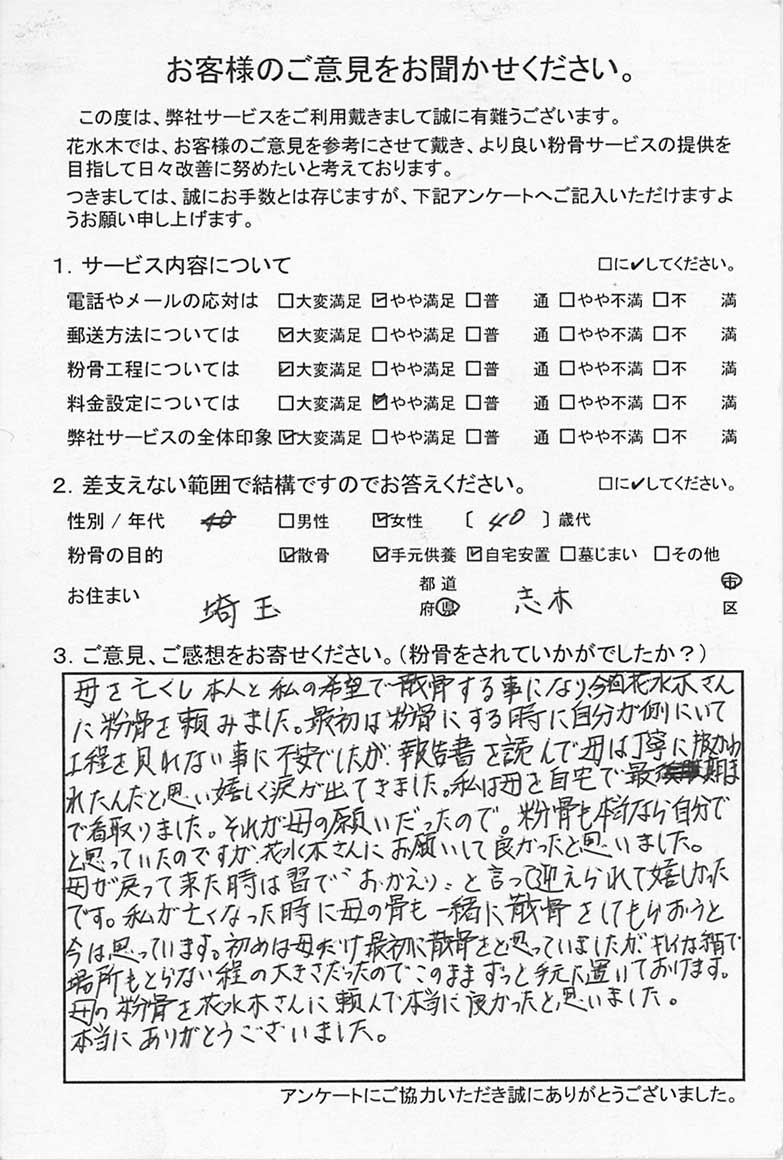 お客様のご意見をお聞かせください。
この度は、弊社サービスをご利用戴きまして誠に有難うございます。
花水木では、お客様のご意見を参考にさせて戴き、より良い粉骨サービスの提供を
目指して日々改善に努めたいと考えております。
つきましては、誠にお手数とは存じますが、下記アンケートへご記入いただけますよ
うお願い申し上げます。
1. サービス内容について □に✔してください。
電話やメールの応対は □大変満足 ☑やや満足 □普 通 □やや不満 □不 満
郵送方法については ☑大変満足 □やや満足 □普 通 □やや不満 □不 満
粉骨工程については ☑大変満足 □やや満足 □普 通 □やや不満 □不 満
料金設定については □大変満足 ☑やや満足 □普 通 □やや不満 □不 満
弊社サービスの全体印象 ☑大変満足 □やや満足 □普 通 □やや不満 □不 満
2. 差支えない範囲で結構ですのでお答えください。 □に✔してください。
性別 / 年代 40 □男性 ☑女性 〔 40 〕歳代
粉骨の目的 ☑散骨 ☑手元供養 ☑自宅安置 □墓じまい □その他
お住まい 埼玉 都道府県 志木 市区
3. ご意見、ご感想をお寄せください。(粉骨をされていかがでしたか?)
母を亡くし本人と私の希望で散骨する事になり、今回花水木さん
に粉骨を頼みました。最初は粉骨にする時に自分が側にいて
工程を見れない事に不安でしたが、報告書を読んで母は丁寧に扱かわ
れたんだと思い嬉しく涙が出てきました。私は母を自宅で最期ま
で看取りました。それが母の願いだったので。粉骨も本当なら自分で
と思っていたのですが花水木さんにお願いして良かったと思いました。
母が戻って来た時は習で"おかえり"と言って迎えられて嬉しかった
です。私が亡くなった時に母の骨も一緒に散骨をしてもらおうと
今は思っています。初めは母だけ最初に散骨をと思っていましたがキレイな箱で
場所もとらない程の大きさだったのでこのままずっと手元に置いておけます。
母の粉骨を花水木さんに頼んで本当に良かったと思いました。
本当にありがとうございました。
アンケートにご協力いただき誠にありがとうございました。